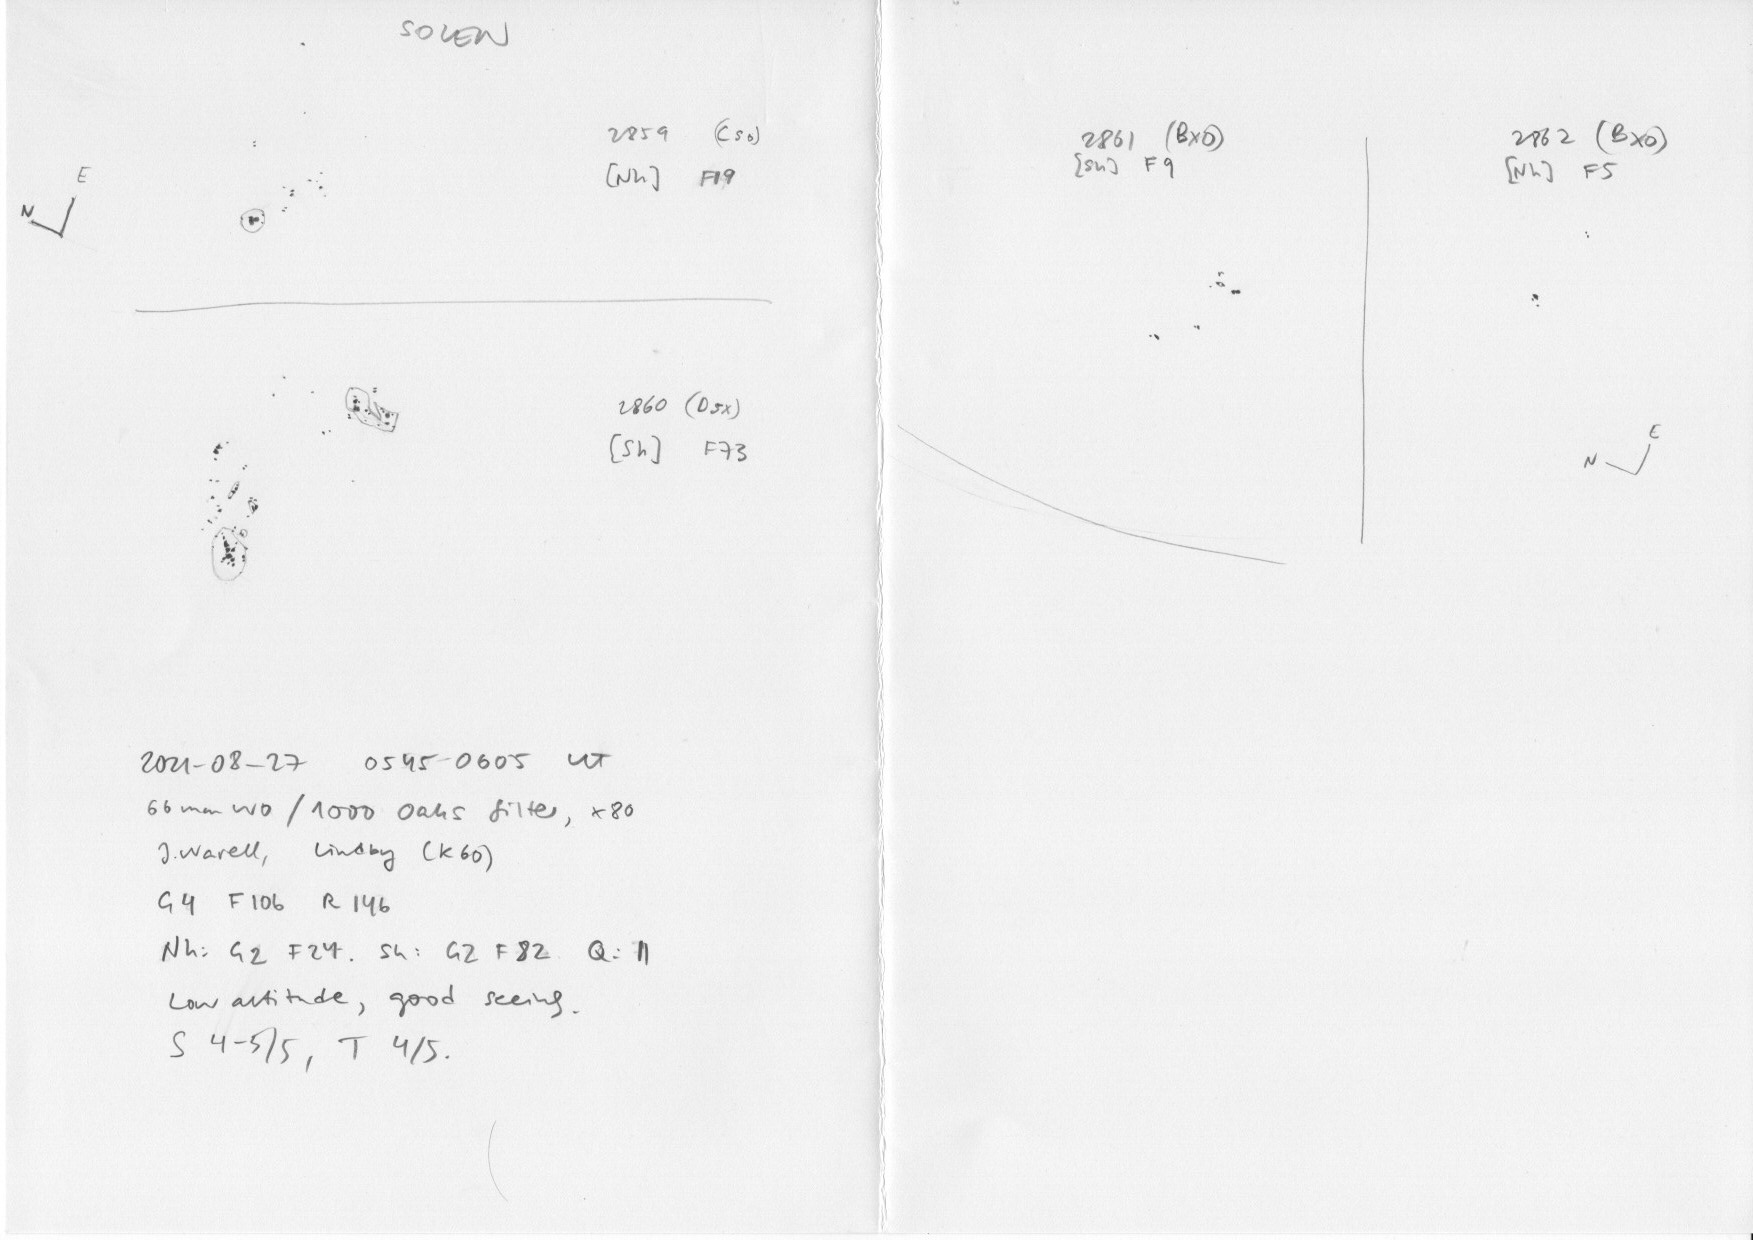 SOLEN
2859 (Cso)
[Nh] F19
E
N
2860 (Dsx)
[Sh] F73
2021-08-27 0545-0605 UT
66 mm WO / 1000 Oaks filter, x80
J. Warell, Lindby (K60)
G4 F106 R146
Nh: G2 F24. Sh: G2 F82 Q: 11
Low altitude, good seeing.
S 4-5/5, T 4/5.
2861 (BXO)
[Sh] F9
2862 (BXO)
[Nh] F5
E
N